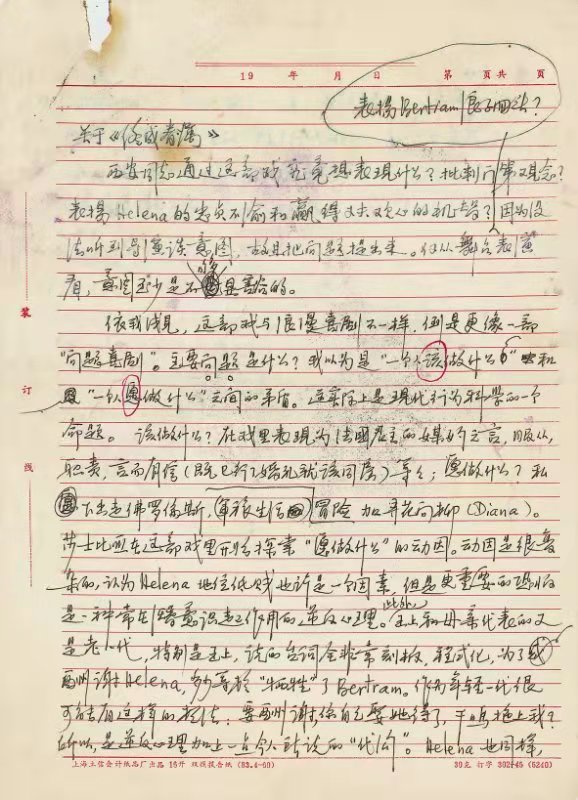 19 年 月 日 第 页共 页
表扬Bertram 良子回头?
关于《终成眷属》
西安同志通过这部戏究竟想表现什么?批判门第观念?
表扬Helena的忠贞不俞和赢得丈夫欢心的机智?因为没
法听到导演谈意图,故且把问题提出来。但从舞台表演
看,意图至少是不够显露的。
依我浅见,这部戏与浪漫喜剧不一样,倒是更像一部
"问题喜剧"。主要问题是什么?我以为是"一个人该做什么"和
"一个人愿做什么"之间的矛盾。这实际上是现代行为科学的一个
命题。该做什么?在戏里表现为法國君主的媒妁之言,服从,
职责,言而有信(既已行了婚礼就该同房)等々;愿做什么?私
下出走佛罗伦斯,军旅生活 冒险 加寻花问柳(Diana)。
莎士比亚在这部戏里开始探索"愿做什么"的动因。动因是很复
杂的,认为Helena地位低贱也许是一个因素,但是更重要的恐怕
是一种常在暗意识起作用的逆反心理。此外,王上和母亲代表的又
是老一代,特别是王上,说的台词全非常刻板,程式化,为了
酬谢Helena, "牺牲"了Bertram。作为年轻一代很
可能有这样的想法:要酬谢你自己娶她得了,干嘛拖上我?
所以,是逆反心理加上一点今人所说的"代沟"。Helena也同样,
装
订
线
上海立信会计纸品厂出品 16开 双横报告纸 (83.4-60)
30克 订字 302-45 (5240)